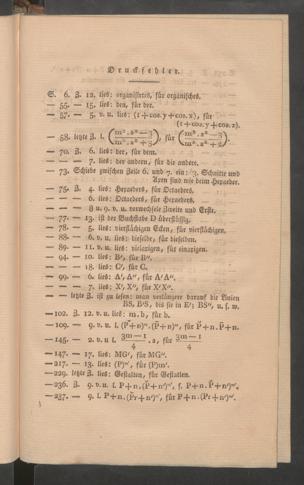 Druckfehler.
S. 6. Z. 12. lies: organisirtes, für organisches.
— 55. — 15. lies: den, für der.
— 57. — 5. v. u. lies: (1+cos.y+cos.z), für
(1+cos.y+cos.z).
— 58. letzte Z. l. (m².2ⁿ−3 / m².2ⁿ+3), für
— 70. Z. 6. lies: der, für dem.
— — — 7. lies: der andern, für die andere.
— 73. Schiebe zwischen Zeile 6. und 7. ein: 3. Schnitte und
Axen sind wie beim Hexaeder.
— 75. Z. 4. lies: Hexaeders, für Octaeders.
— — — 6. lies: Octaeders, für Hexaeders.
— — — 8 u. 9. v. u. verwechsele Zweite und Erste.
— 77. — 13. ist der Buchstabe D überflüssig.
— 78. — 5. lies: vierflächigen Ecken, für vierflächigen.
— 88. — 6. v. u. lies: dieselbe, für dieselben.
— 89. — 11. v. u. lies: vielaxigen, für einaxigen.
— 94. — 10. lies: B', für B".
— — — 18. lies: C', für C.
— 99. — 6. lies: A', A", für A'A".
— — — 7. lies: X', X", für X'X".
— — letzte Z. ist zu lesen: man verlängere darauf die Linien
BS, B'S, bis sie in E'; BS", u. s. w.
— 102. Z. 12. v. u. lies: m. b, für b.
— 109. — 9. v. u. l. (P̆+n)ᵐ. (P̄+n)ᵐ, für P̆+n. P̄+n.
— 145. — 2. v. u. l. 3m−1 / 4 . 2, für 3m−1 / 4 .
— 147. — 17. lies: MG', für MG".
— 217. — 13. lies: (P)ᵐ, für (P)m'.
— 229. letzte Z. lies: Gestalten, für Gestalten.
— 236. Z. 9. v. u. l. P+n.
— 237. — 9. l. P+n.